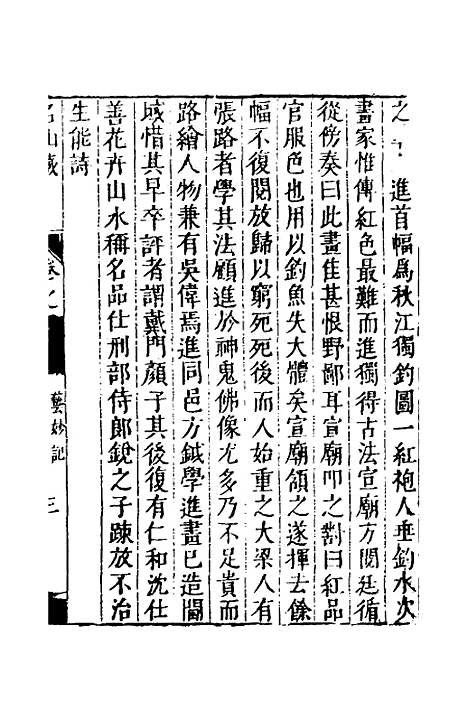 之 進首幅爲秋江獨釣圖一紅袍人垂釣水次
畫家惟傳紅色最難而進獨得古法宣廟方閱廷循
從傍奏曰此畫佳甚恨野鄙耳宣廟叩之對曰紅品
官服色也用以釣魚失大體矣宣廟頷之遂揮去餘
幅不復閱放歸以窮死死後而人始重之大梁人有
張路者學其法顧進於神鬼佛像尤多乃不足貴而
路繪人物兼有吳偉焉進同邑方鉞學進畫已造閫
域惜其早卒評者謂戴門顏子其後復有仁和沈仕
善花卉山水稱名品仕刑部侍郎銳之子踈放不治
生能詩
名山藏
卷之
藝妙記
三